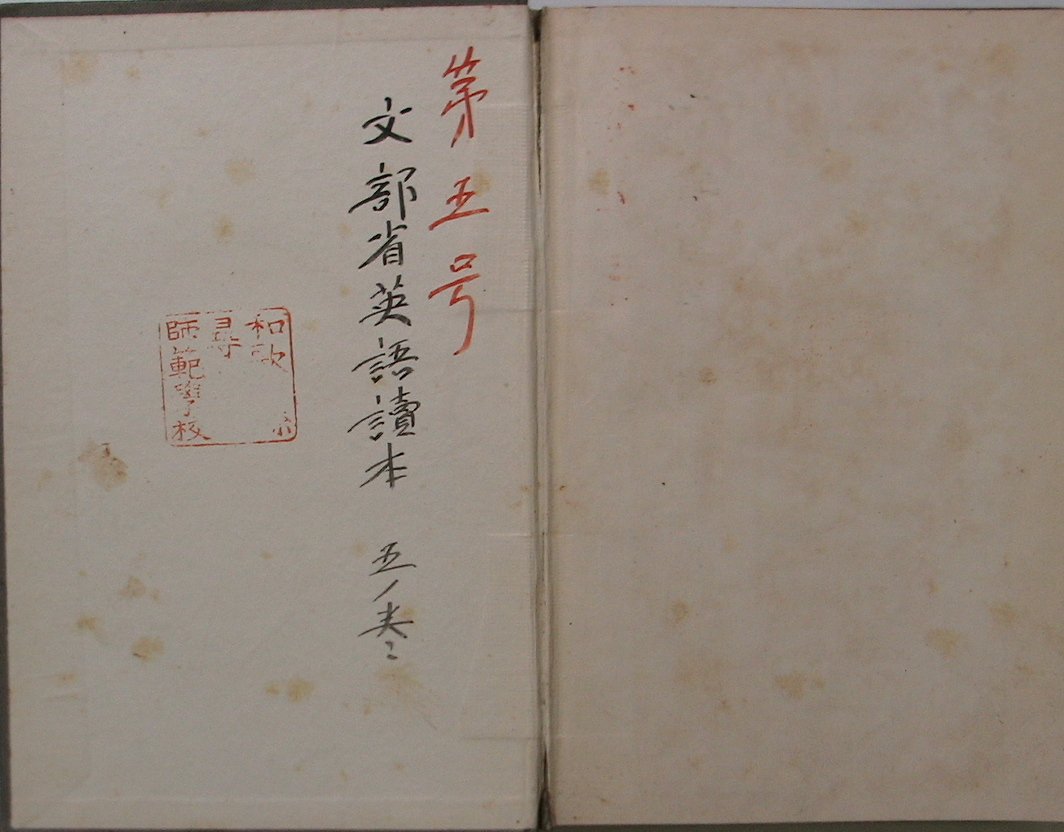 第五号
文部省英語讀本　五ノ巻
和歌
尋
師範學校